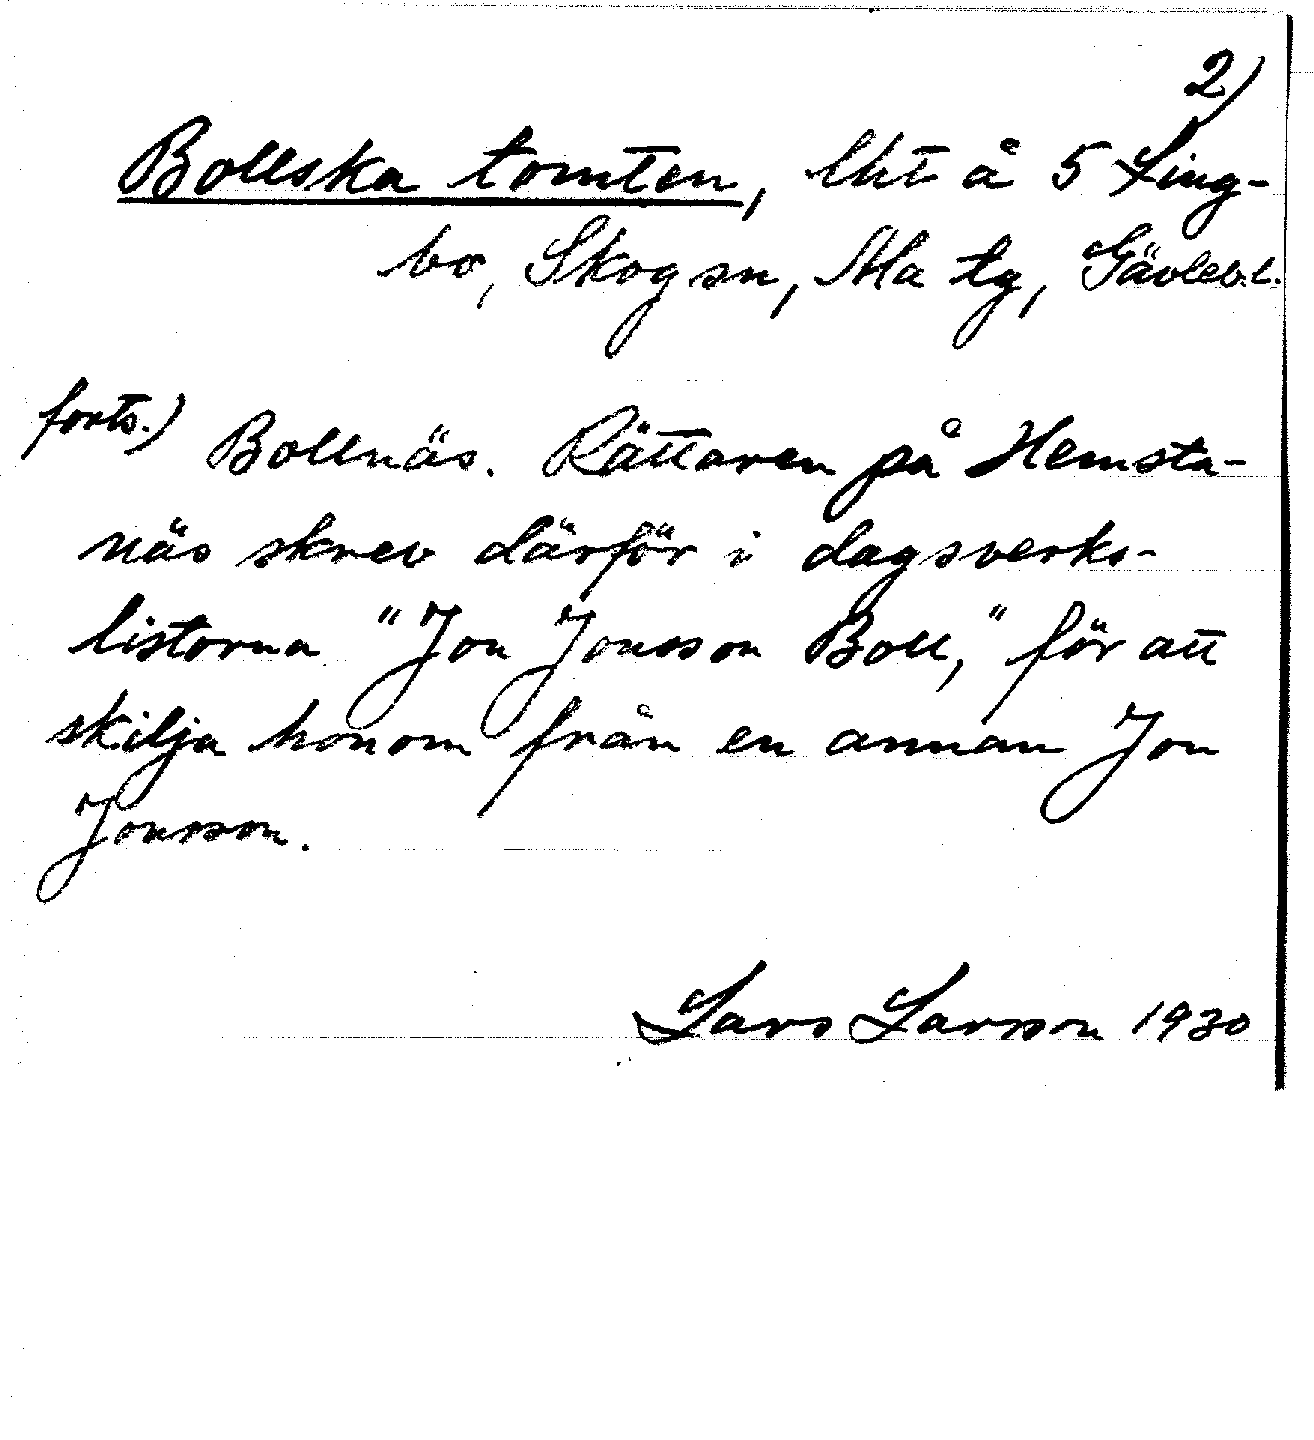 2)
Bollska tomten, lht å 5 Ling-
bo, Skog sn, Ala tg, Gävleb.l.
forts.) Bollnäs. Rättaren på Hemsta-
näs skrev därför i dagsverks-
listorna "Jon Jonsson Boll," för att
skilja honom från en annan Jon
Jonsson.
Lars Larsson 1930